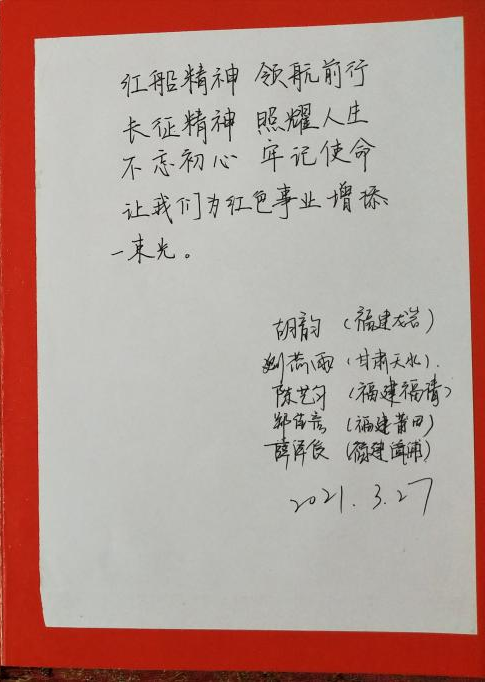 红船精神 领航前行
长征精神 照耀人生
不忘初心 牢记使命
让我们为红色事业增添
一束光。
胡韵（福建龙岩）
刘燕雨（甘肃天水）.
陈艺匀（福建福清）
郑佳（福建莆田）
薛泽俊（福建漳浦）
2021.3.27